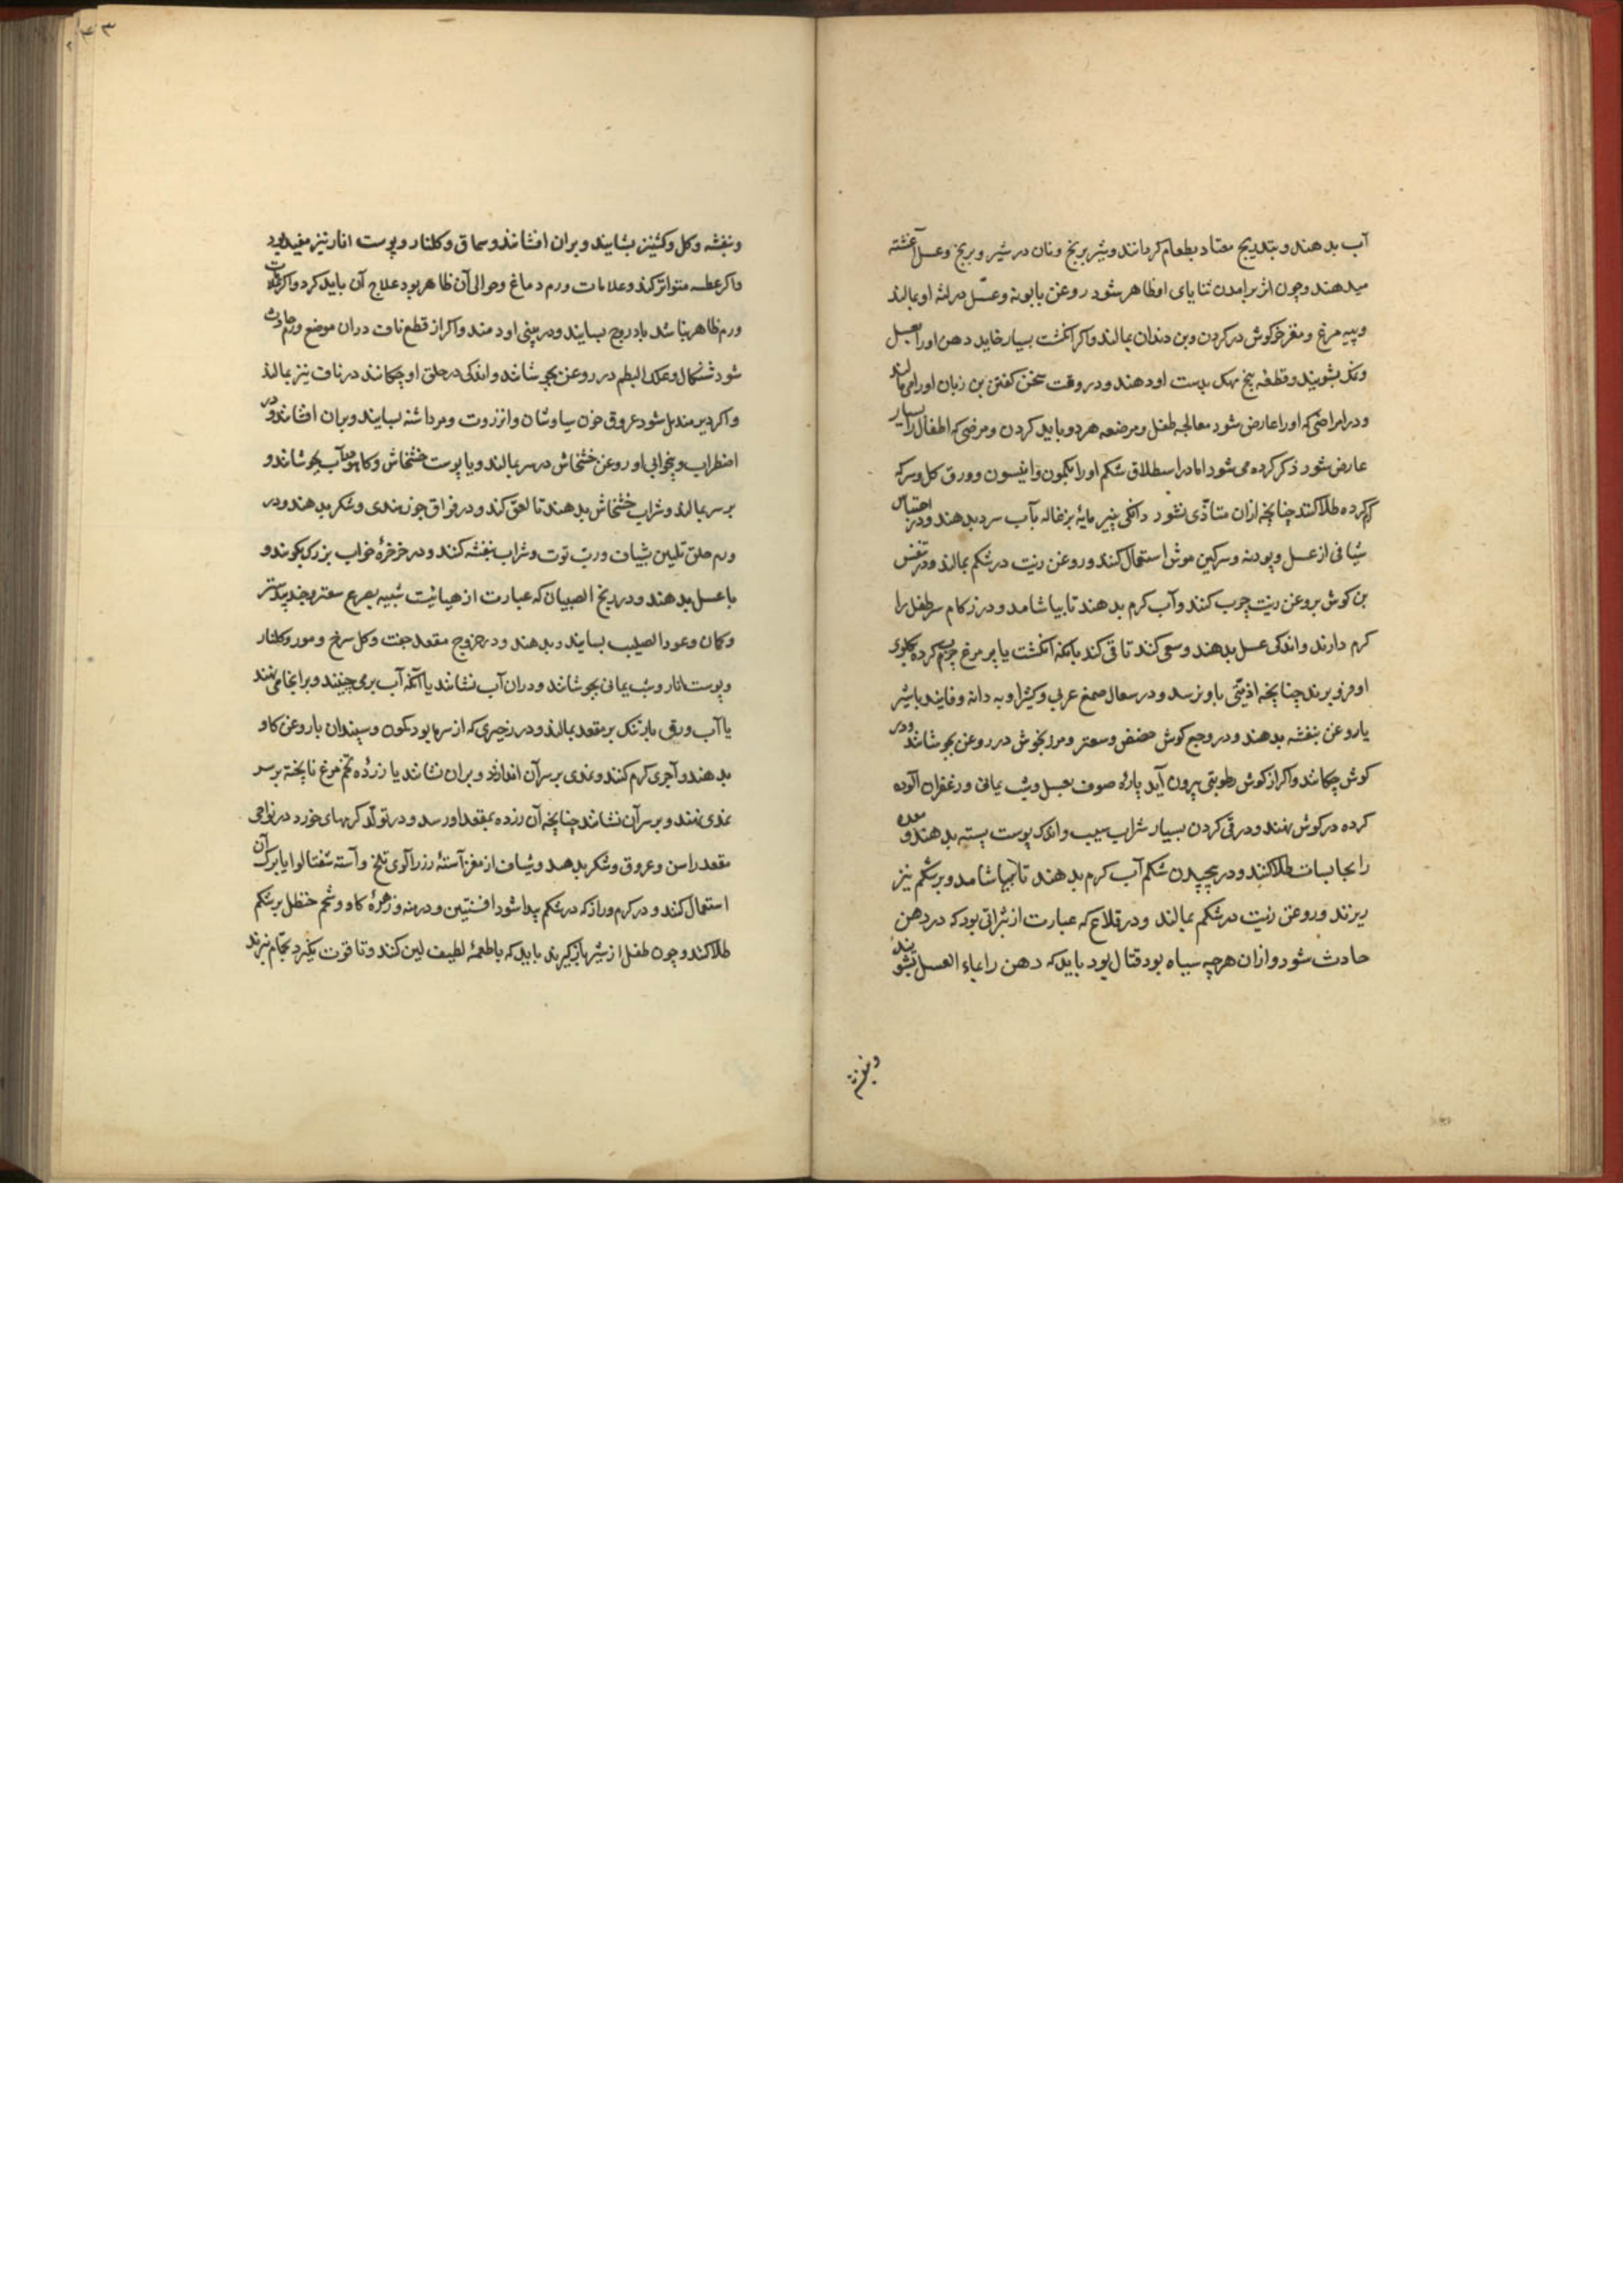 آب بدهند و بتدریج معتاد بطعام کردانند و بشیر برنج و نان در شیر و برنج و عسل آغشته
میدهند و چون اثر برامدن ثنایای او ظاهر شود روغن بابونه و عسل در لثه او بمالند
و پیه مرغ و مغز خرکوش در کردن و بن دندان بمالند و اکر انکشت بسیار خاید دهن او را بعسل
و نمک بشویند و قطعه بیخ مهک بدست او دهند و در وقت سخن کفتن بن زبان او را می مالند
و در امراضی که او را عارض شود معالجه طفل و مرضعه هر دو باید کردن و مرضی که اطفال را بسیار
عارض شود ذکر کرده می شود اما در اسطلاق شکم او را بکمون و انیسون و ورق کل و سرکه
کرم کرده طلا کنند چنانچه ازان متاذی نشود دانکی پنیر مایهٔ بزغاله بآب سرد بدهند و در احتباس
شیافی از عسل و پودنه و سرکین موش استعمال کنند و روغن زیت در شکم بمالند و در تنفس
بن کوش بروغن زیت چرب کنند و آب کرم بدهند تا بیاشامد و در زکام سر طفل را
کرم دارند و اندکی عسل بدهند و سعی کنند تا قی کند بانکه انکشت یا پر مرغ چرب کرده بکلوی
او فرو برند چنانچه اذیتی باو نرسد و در سعال صمغ عربی و کثیرا و به دانه و فانیذ با شیر
یا روغن بنفشه بدهند و در وجع کوش حضض و سعتر و مرزنجوش در روغن بجوشانند و در
کوش چکانند و اکر از کوش رطوبتی بیرون آید پارهٔ صوف بعسل و شب یمانی و زعفران آلوده
کرده در کوش نهند و در قی کردن بسیار شراب سیب و اندک پوست پسته بدهند و معده
را بجابسات طلا کنند و در پیچیدن شکم آب کرم بدهند تا بیاشامد و بر شکم نیز
ریزند و روغن زیت در شکم بمالند و در قلاع که عبارت از بثراتی بود که در دهن
حادث شود و ازان هرچه سیاه بود قتال بود باید که دهن را بماء العسل بشویند
و بنفشه
۲۴۳
و بنفشه و کل و کشنیز بسایند و بران افشانند و سماق و کلنار و پوست انار نیز مفید بود
و اکر عطسه متواتر کند و علامات ورم دماغ و حوالی آن ظاهر بود علاج آن باید کرد و اکر علامت
ورم ظاهر نباشد بادروج بسایند و در بینی او دمند و اکر از قطع ناف دران موضع ورم حادث
شود شنکال و علک البطم در روغن بجوشانند و اندکی در حلق او چکانند در ناف نیز بمالند
و اکر دیر مندمل شود عروق خون سیاوشان و انزروت و مرداشنه بسایند و بران افشانند و در
اضطراب و بیخوابی او روغن خشخاش در سر بمالند و یا پوست خشخاش و کاهو بآب بجوشانند و
بر سر بمالند و شراب خشخاش بدهند تا لعق کند و در فواق جوز هندی و شکر بدهند و در
ورم حلق تلیین بشیاف و رب توت و شراب بنفشه کنند و در خرخرهٔ خواب بزرک بکوبند و
با عسل بدهند و در ریح الصبیان که عبارت از هیاتیست شبیه بصرع سعتر و جند بیدستر
و کمان و عود الصلیب بسایند و بدهند و در خروج مقعد جفت و کل سرخ و مورد و کلنار
و پوست انار و شب یمانی بجوشانند و دران آب نشانند یا آنکه آب برمی چینند و برانجا می نهند
یا آب ورق بارتنک بر مقعد بمالند و در زحیری که از سرما بود کمون و سپندان با روغن کاو
بدهند و آجری کرم کنند و نمدی بر سر آن اندازند و بران نشانند یا زردهٔ تخم مرغ نا پخته بر سر
نمدی نهند و بر سر آن نشانند چنانچه آن زرده بمقعد او رسد و در تولد کرمهای خورد در نواحی
مقعد راسن و عروق و شکر بدهند و شیاف از مغز آستهٔ زردآلوی تلخ و آسته شفتالو یا برک آن
استعمال کنند و در کرم دراز که در شکم پیدا شود افسنتین و درمنه و زهرهٔ کاو و شحم حنظل بر شکم
طلا کنند و چون طفل از شیر باز کیرند باید که باطعمهٔ لطیف لین کنند و تا قوت نکیرد بحمام نبرند